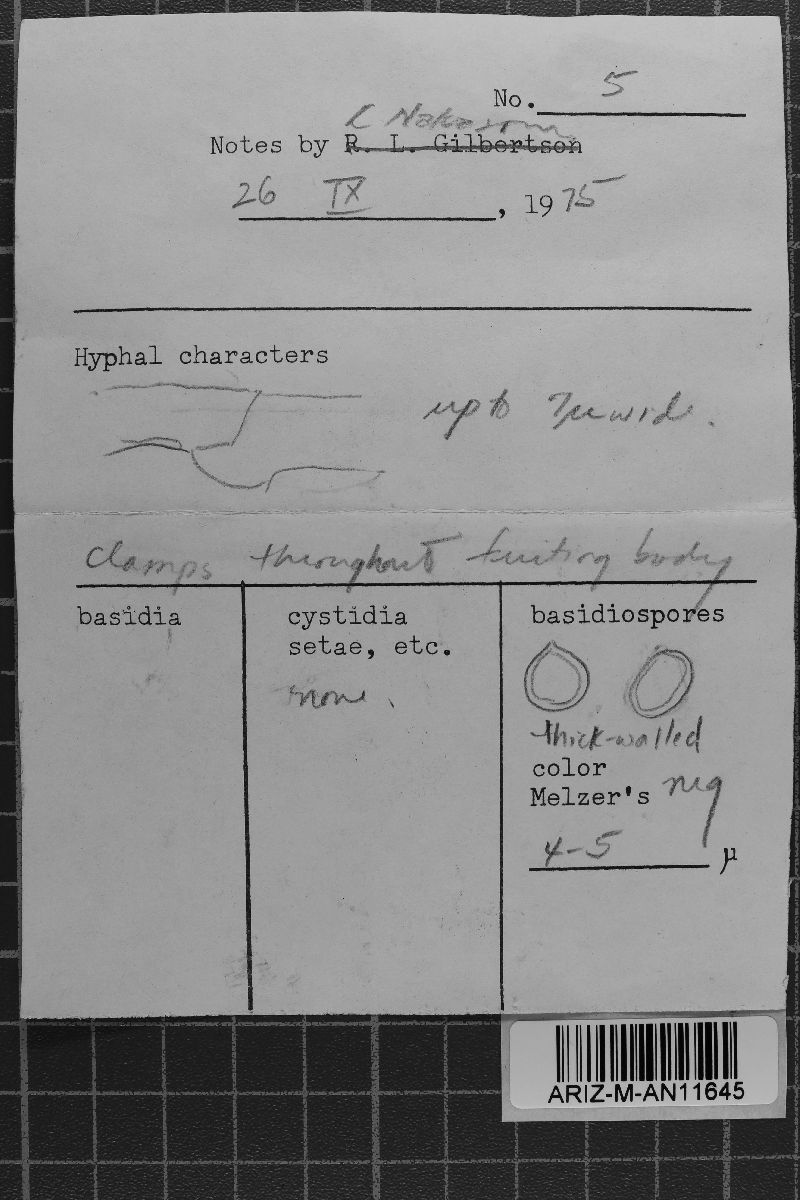 No. 5
K Nakasone
Notes by R. L. Gilbertson
26 IX, 1975
Hyphal characters
up to 7µ wide.
clamps throughout fruiting body
basidia
cystidia
setae, etc.
none.
basidiospores
thick-walled
color
Melzer's neg
4-5 µ
ARIZ-M-AN11645